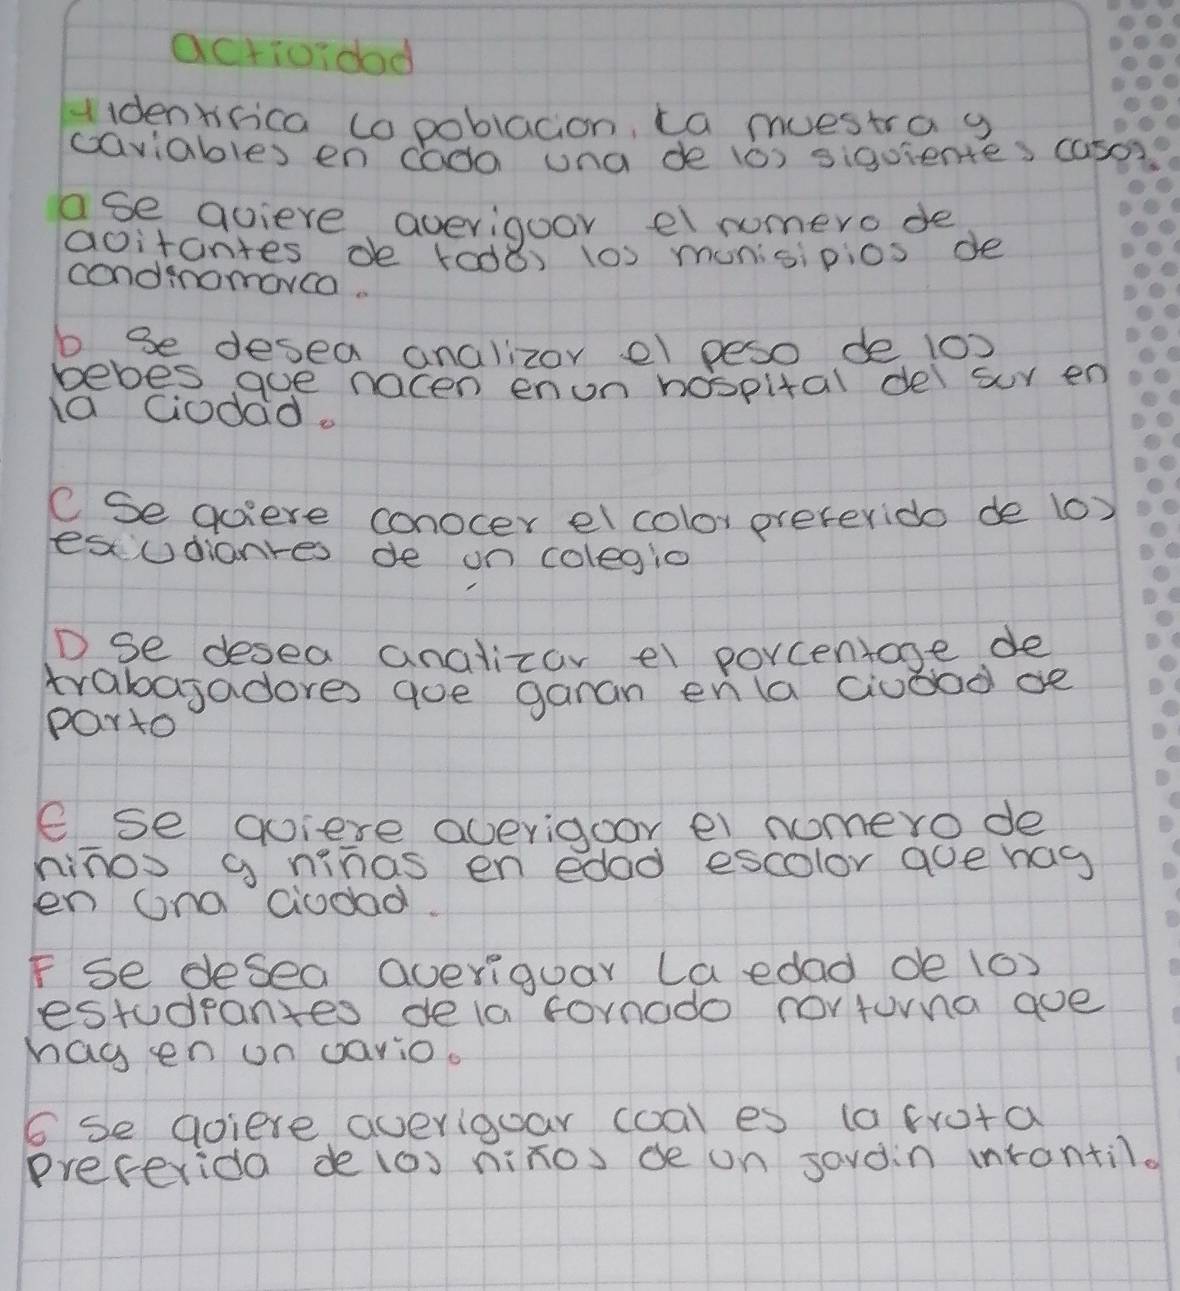 actividad
1 identifica la poblacion, la muestra y
variables en cada una de los siguientes casos.
a se quiere averiguar el numero de
avitantes de todos los munisipios de
condinamarca.
b se desea analizar el peso de los
bebes que nacen en un hospital del sur en
la ciudad.
C Se quiere conocer el color preferido de los
estudiantes de un colegio
D se desea analizar el porcentage de
trabajadores que ganan en la ciudad de
parto
e se quiere averiguar el numero de
niños y niñas en edad escolar que hay
en una ciudad.
F se desea averiguar la edad de los
estudiantes de la jornado norturna que
hay en un vario.
G se quiere averiguar cual es la fruta
preferida de los niños de un jardin infantil.